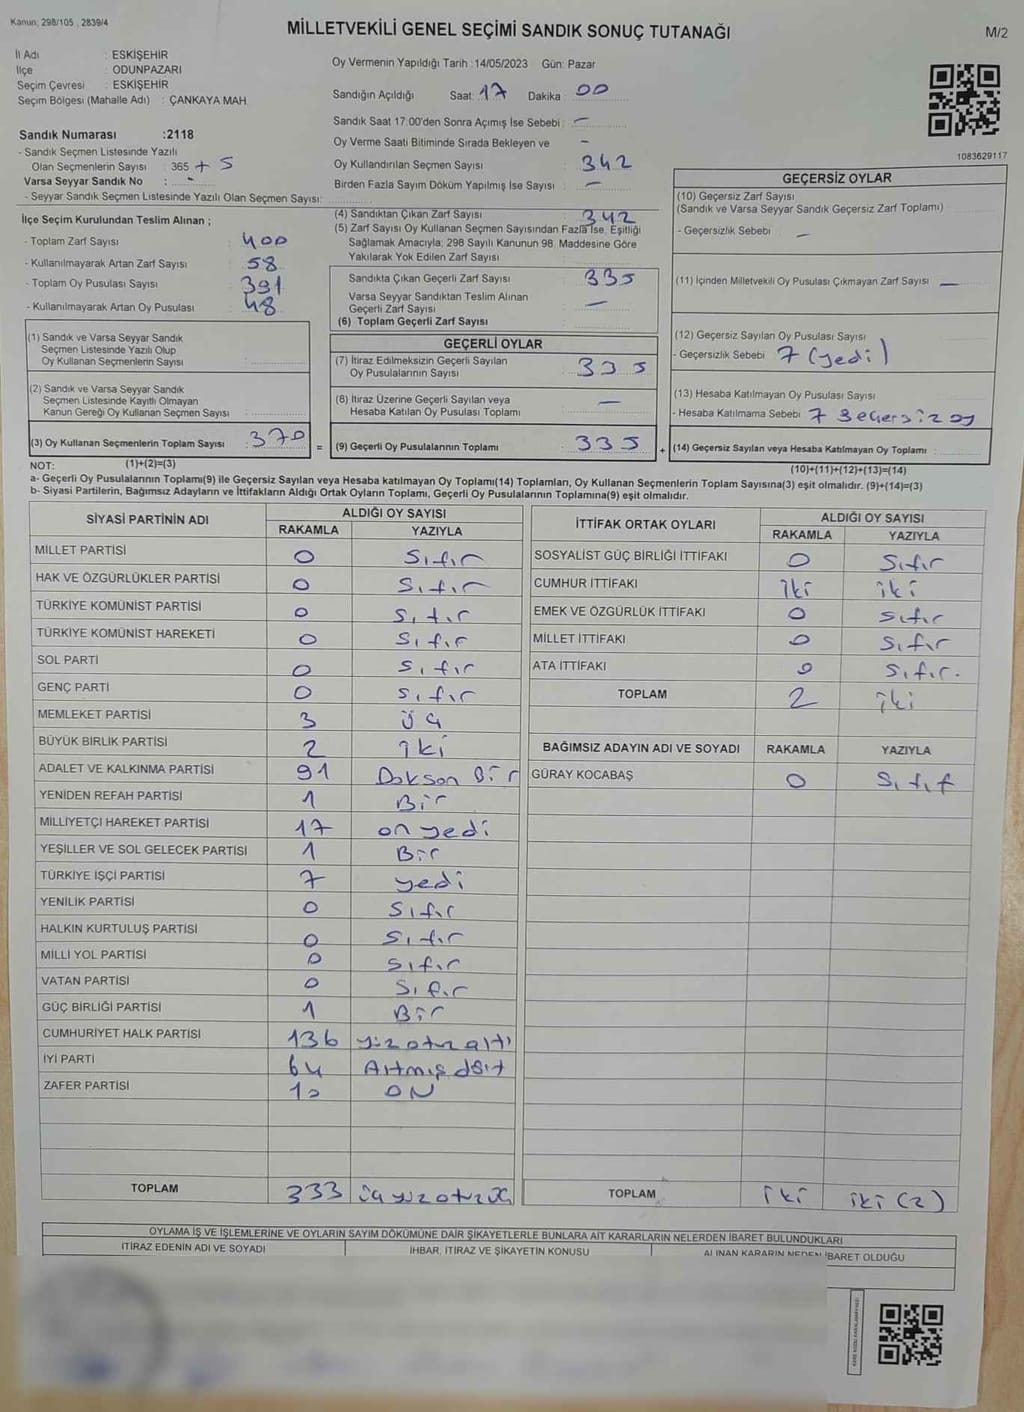 Kanun; 298/105 , 2839/4
MİLLETVEKİLİ GENEL SEÇİMİ SANDIK SONUÇ TUTANAĞI
M/2
İl Adı : ESKİŞEHİR
İlçe : ODUNPAZARI
Seçim Çevresi : ESKİŞEHİR
Seçim Bölgesi (Mahalle Adı) : ÇANKAYA MAH.
Sandık Numarası :2118
- Sandık Seçmen Listesinde Yazılı
Olan Seçmenlerin Sayısı : 365 + 5
Varsa Seyyar Sandık No : -
- Seyyar Sandık Seçmen Listesinde Yazılı Olan Seçmen Sayısı:
İlçe Seçim Kurulundan Teslim Alınan ;
- Toplam Zarf Sayısı : 400
- Kullanılmayarak Artan Zarf Sayısı : 58
- Toplam Oy Pusulası Sayısı : 391
- Kullanılmayarak Artan Oy Pusulası : 48
(1) Sandık ve Varsa Seyyar Sandık
Seçmen Listesinde Yazılı Olup
Oy Kullanan Seçmenlerin Sayısı :
(2) Sandık ve Varsa Seyyar Sandık
Seçmen Listesinde Kayıtlı Olmayan
Kanun Gereği Oy Kullanan Seçmen Sayısı :
(3) Oy Kullanan Seçmenlerin Toplam Sayısı : 370
Oy Vermenin Yapıldığı Tarih : 14/05/2023 Gün: Pazar
Sandığın Açıldığı Saat: 17 Dakika : 00
Sandık Saat 17.00'den Sonra Açımış İse Sebebi : -
Oy Verme Saati Bitiminde Sırada Bekleyen ve -
Oy Kullandırılan Seçmen Sayısı : 342
Birden Fazla Sayım Döküm Yapılmış İse Sayısı : -
(4) Sandıktan Çıkan Zarf Sayısı : 342
(5) Zarf Sayısı Oy Kullanan Seçmen Sayısından Fazla İse, Eşitliği
Sağlamak Amacıyla; 298 Sayılı Kanunun 98. Maddesine Göre
Yakılarak Yok Edilen Zarf Sayısı :
Sandıkta Çıkan Geçerli Zarf Sayısı : 335
Varsa Seyyar Sandıktan Teslim Alınan
Geçerli Zarf Sayısı : -
(6) Toplam Geçerli Zarf Sayısı :
GEÇERLİ OYLAR
(7) İtiraz Edilmeksizin Geçerli Sayılan
Oy Pusulalarının Sayısı : 335
(8) İtiraz Üzerine Geçerli Sayılan veya
Hesaba Katılan Oy Pusulası Toplamı : -
= (9) Geçerli Oy Pusulalarının Toplamı : 335
1083629117
GEÇERSİZ OYLAR
(10) Geçersiz Zarf Sayısı
(Sandık ve Varsa Seyyar Sandık Geçersiz Zarf Toplamı) :
- Geçersizlik Sebebi : -
(11) İçinden Milletvekili Oy Pusulası Çıkmayan Zarf Sayısı : -
(12) Geçersiz Sayılan Oy Pusulası Sayısı :
- Geçersizlik Sebebi : 7 (yedi)
(13) Hesaba Katılmayan Oy Pusulası Sayısı :
- Hesaba Katılmama Sebebi : 7 Geçersiz oy
+ (14) Geçersiz Sayılan veya Hesaba Katılmayan Oy Toplamı :
NOT: (1)+(2)=(3)
(10)+(11)+(12)+(13)=(14)
a- Geçerli Oy Pusulalarının Toplamı(9) ile Geçersiz Sayılan veya Hesaba katılmayan Oy Toplamı(14) Toplamları, Oy Kullanan Seçmenlerin Toplam Sayısına(3) eşit olmalıdır. (9)+(14)=(3)
b- Siyasi Partilerin, Bağımsız Adayların ve İttifakların Aldığı Ortak Oyların Toplamı, Geçerli Oy Pusulalarının Toplamına(9) eşit olmalıdır.
SİYASİ PARTİNİN ADI ALDIĞI OY SAYISI
RAKAMLA YAZIYLA
MİLLET PARTİSİ 0 Sıfır
HAK VE ÖZGÜRLÜKLER PARTİSİ 0 Sıfır
TÜRKİYE KOMÜNİST PARTİSİ 0 Sıfır
TÜRKİYE KOMÜNİST HAREKETİ 0 Sıfır
SOL PARTİ 0 Sıfır
GENÇ PARTİ 0 Sıfır
MEMLEKET PARTİSİ 3 Üç
BÜYÜK BİRLİK PARTİSİ 2 iki
ADALET VE KALKINMA PARTİSİ 91 Doksan Bir
YENİDEN REFAH PARTİSİ 1 Bir
MİLLİYETÇİ HAREKET PARTİSİ 17 on yedi
YEŞİLLER VE SOL GELECEK PARTİSİ 1 Bir
TÜRKİYE İŞÇİ PARTİSİ 7 yedi
YENİLİK PARTİSİ 0 Sıfır
HALKIN KURTULUŞ PARTİSİ 0 Sıfır
MİLLİ YOL PARTİSİ 0 Sıfır
VATAN PARTİSİ 0 Sıfır
GÜÇ BİRLİĞİ PARTİSİ 1 Bir
CUMHURİYET HALK PARTİSİ 136 yüz otuz altı
İYİ PARTİ 64 Altmış dört
ZAFER PARTİSİ 10 ON
TOPLAM 333 üç yüz otuz üç
İTTİFAK ORTAK OYLARI ALDIĞI OY SAYISI
RAKAMLA YAZIYLA
SOSYALİST GÜÇ BİRLİĞİ İTTİFAKI 0 Sıfır
CUMHUR İTTİFAKI iki iki
EMEK VE ÖZGÜRLÜK İTTİFAKI 0 Sıfır
MİLLET İTTİFAKI 0 Sıfır
ATA İTTİFAKI 0 Sıfır.
TOPLAM 2 iki
BAĞIMSIZ ADAYIN ADI VE SOYADI RAKAMLA YAZIYLA
GÜRAY KOCABAŞ 0 Sıfır
TOPLAM iki iki (2)
OYLAMA İŞ VE İŞLEMLERİNE VE OYLARIN SAYIM DÖKÜMÜNE DAİR ŞİKAYETLERLE BUNLARA AİT KARARLARIN NELERDEN İBARET BULUNDUKLARI
İTİRAZ EDENİN ADI VE SOYADI İHBAR, İTİRAZ VE ŞİKAYETİN KONUSU ALINAN KARARIN NEDEN İBARET OLDUĞU